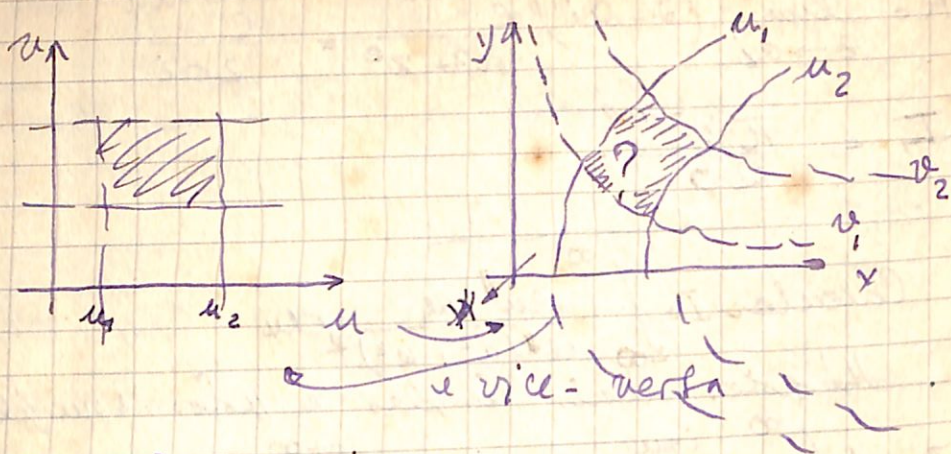 v
u₁ u₂ u
y
u₁
u₂
?
v₂
v₁
x
e vice-versa